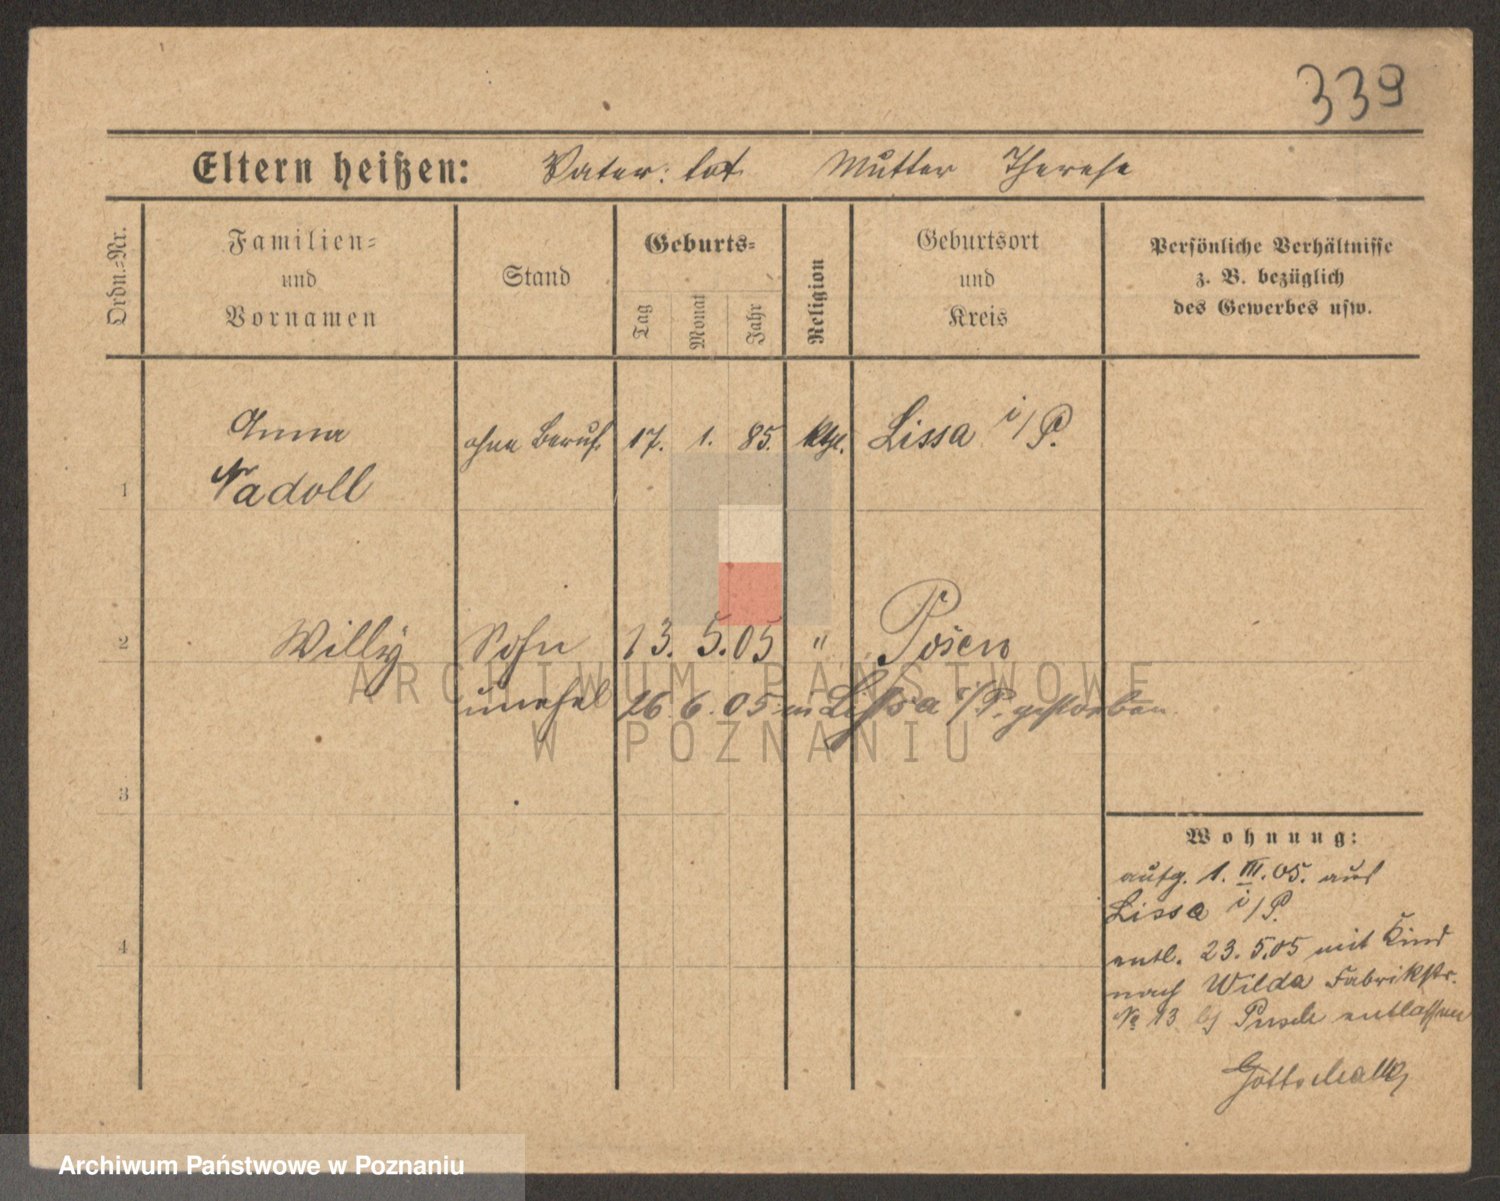 339
Eltern heißen: Vater: tot Mutter Therese
Ordn.-Nr.
Familien-
und
Vornamen
Stand
Geburts-
Tag
Monat
Jahr
Religion
Geburtsort
und
Kreis
Persönliche Verhältnisse
z. B. bezüglich
des Gewerbes usw.
1
Anna
Nadoll
ohne Beruf 17. 1. 85. kth. Lissa i/P.
2
Willy Sohn 13. 5. 05 " Posen
unehel 26 6. 05 in Lissa i/P. gestorben
3
4
Wohnung:
aufg. 1. III. 05. aus
Lissa i/P.
entl. 23. 5.05 mit Kind
nach Wilda Fabrikstr.
No 13 bei entlassen
Gottschalk
ARCHIWUM PAŃSTWOWE
W POZNANIU
Archiwum Państwowe w Poznaniu